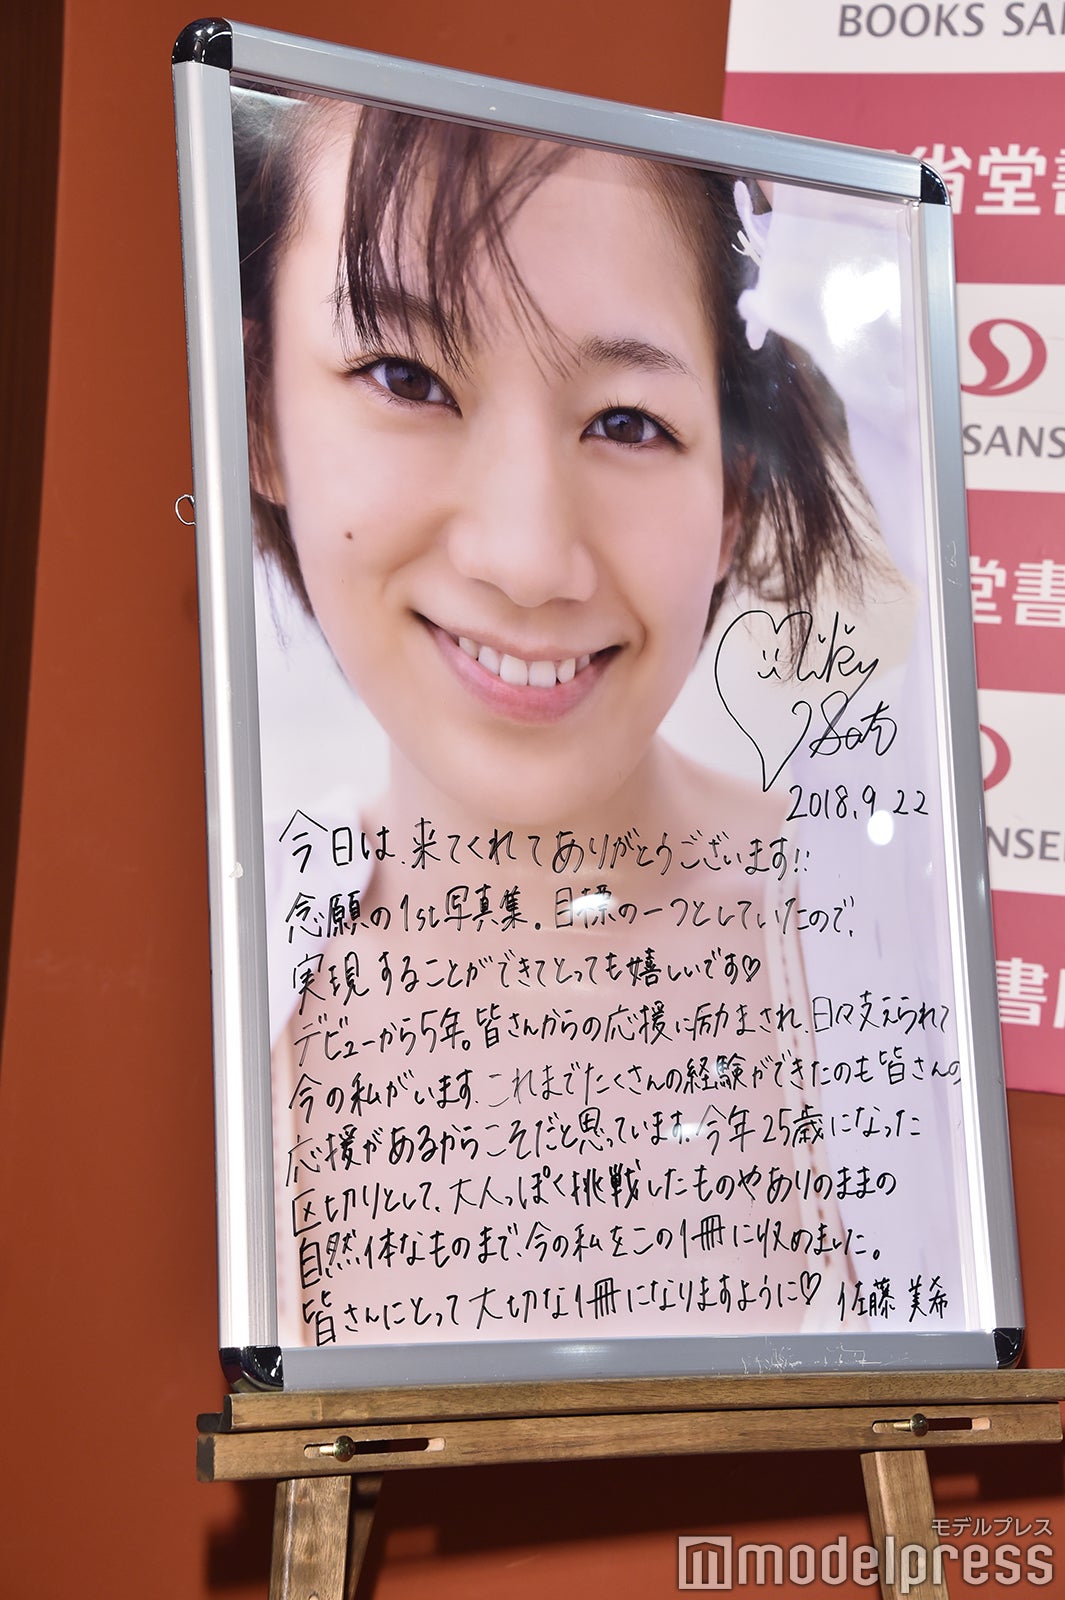 BOOKS SA
省堂書
SANS
堂書
NSE
書
Miky
Sato
2018.9.22
今日は、来てくれてありがとうございます!!
念願の1st写真集。目標の一つとしていたので、
実現することができてとっても嬉しいです♡
デビューから5年。皆さんからの応援に励まされ、日々支えられて
今の私がいます。これまでたくさんの経験ができたのも皆さんの
応援があるからこそだと思っています。今年25歳になった
区切りとして、大人っぽく挑戦したものやありのままの
自然体なものまで、今の私をこの1冊に収めました。
皆さんにとって大切な1冊になりますように♡ 佐藤美希
モデルプレス
modelpress